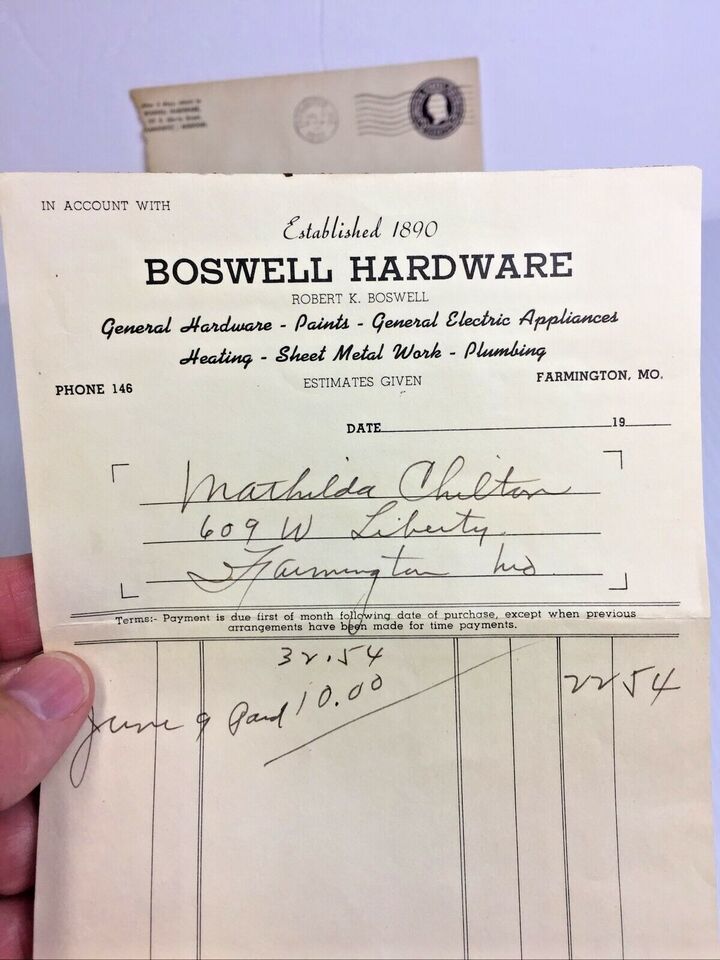 BOSWELL HARDWARE,
IN ACCOUNT WITH
Established 1890
BOSWELL HARDWARE
ROBERT K. BOSWELL
General Hardware - Paints - General Electric Appliances
Heating - Sheet Metal Work - Plumbing
PHONE 146
ESTIMATES GIVEN
FARMINGTON, MO.
DATE 19
Mathilda Chilton
609 W Liberty
Farmington Mo
Terms:- Payment is due first of month following date of purchase, except when previous
arrangements have been made for time payments.
32.54
June 9 Paid 10.00 22 54